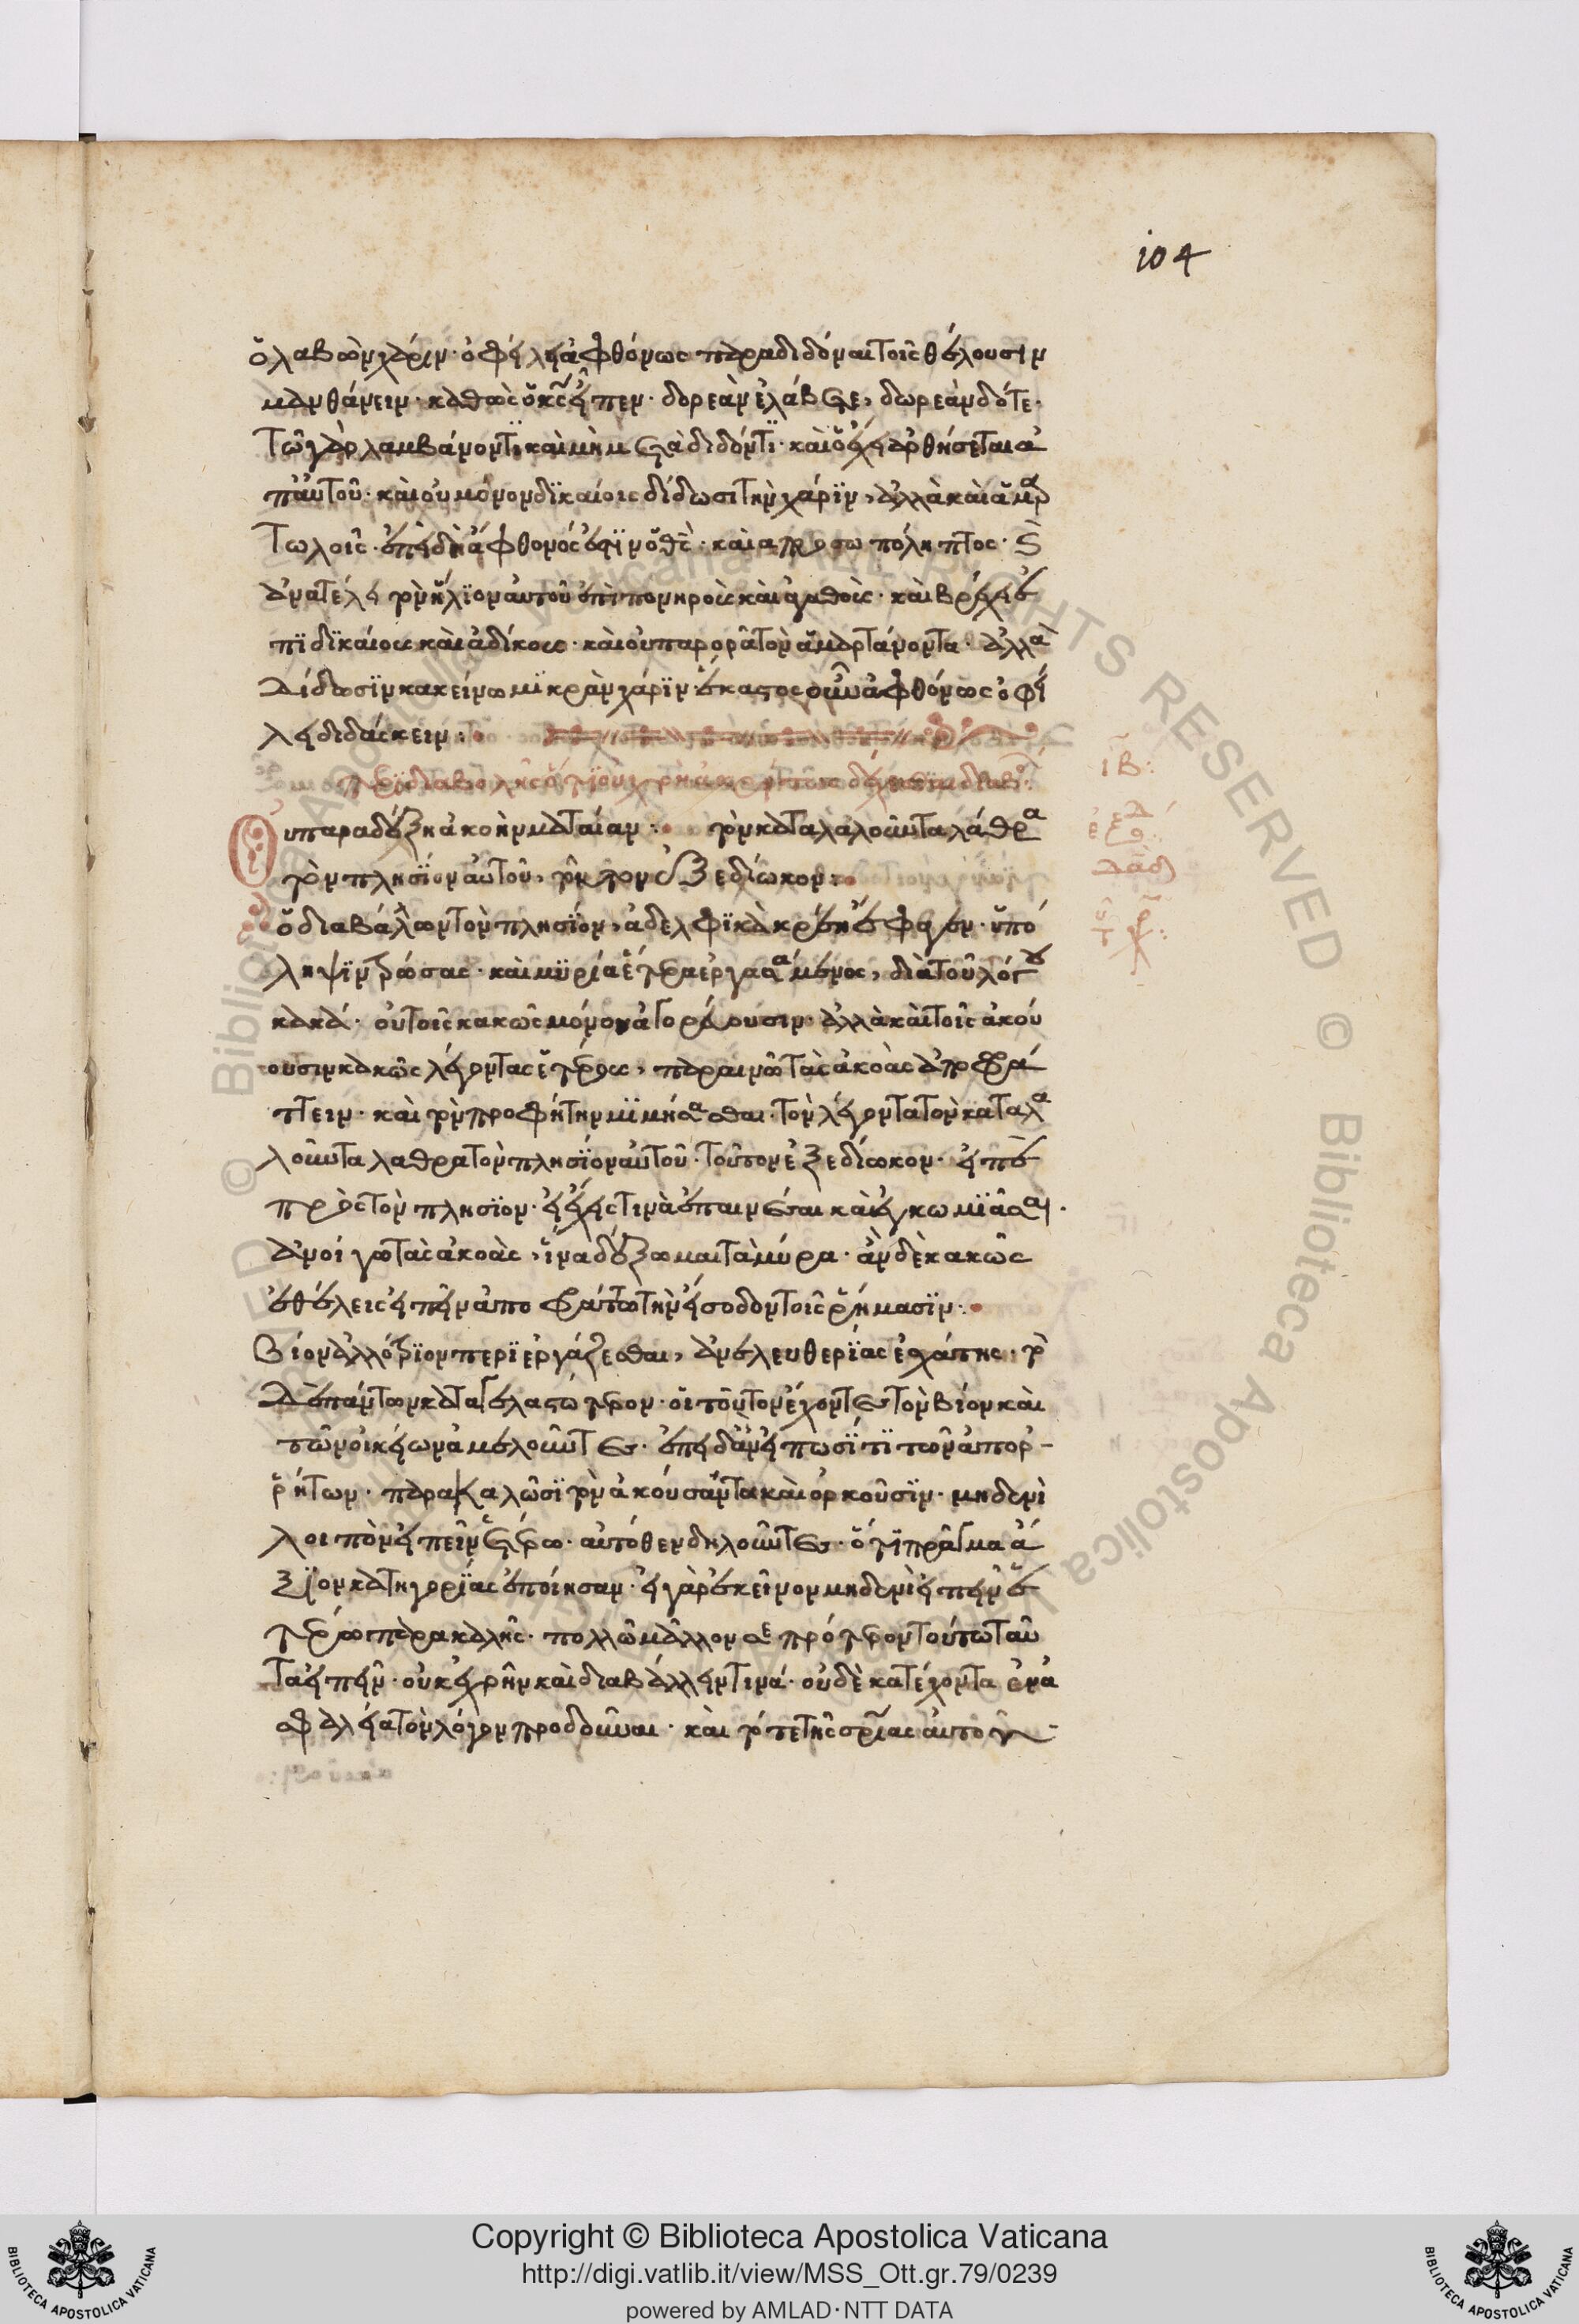 104
ὁ λαβὼν χάριν· ὀφείλει ἀφθόνως παραδιδόναι τοῖς θέλουσιν
μανθάνειν· καθὼς ὁ κς εἶπεν· δωρεὰν ἐλάβετε, δωρεὰν δότε·
τῶ γὰρ λαμβάνοντι καὶ μὴ μεταδιδόντι· καὶ ὃ ἔχει ἀρθήσεται ἀ
π' αὐτοῦ· καὶ οὐ μόνον δικαίοις δίδωσι τὴν χάριν, ἀλλὰ καὶ ἁμαρ
τωλοῖς· ἐπειδὴ ἄφθονός ἐστιν ὁ θς· καὶ απροσωπόληπτος· καὶ
ἀνατέλει τὸν ἥλιον αὐτοῦ ἐπὶ πονηροὺς καὶ ἀγαθούς· καὶ βρέχει ἐ
πι δικαίους καὶ ἀδίκους· καὶ οὐ παρορᾶ τὸν ἁμαρτάνοντα· ἀλλὰ
δίδωσιν κακείνω μικρὰν χάριν· ἕκαστος οὖν ἀφθόνως ὀφεί
λει διδάσκειν:
ιβ:
Οὐ παραδέξη ἀκοὴν ματαίαν: τὸν καταλαλοῦντα λάθρα
τὸν πλησίον αὐτοῦ, τοῦτον ἐξεδίωκον:
Δαδ
ὁ διαβάλλων τὸν πλησίον, ἀδελφικὰ κρέη ἔφαγεν· ὑπό
ληψιν τρώσας· καὶ μύρια ἕτερα ἐργασάμενος, διὰ τοῦ λόγου
κακά· οὐ τοῖς κακῶς μόνον ἀγορεύουσιν· ἀλλὰ καὶ τοῖς ἀκού
ουσιν κακῶς λέγοντας ἑτέρους, παραινῶ τὰς ἀκοὰς ἀποφρά
ττειν· καὶ τὸν προφήτην μιμήσασθαι· τὸν λέγοντα τὸν καταλα
λοῦντα λαθρα τὸν πλησίον αὐτοῦ· τοῦτον ἐξεδίωκον· εἰπὲ
πρὸς τὸν πλησίον· εἰ ἔχεις τινὰ ἐπαινέσαι καὶ ἐγκωμιάσαι·
ἀνοίγω τὰς ἀκοὰς, ἵνα δέξωμαι τὰ μύρα· ἂν δὲ κακῶς
ἐθέλεις εἰπεῖν ἀποφράττω τὴν εἴσοδον τοῖς ῥήμασιν:
Βίον ἀλλότριον περιεργάζεσθαι, ἀνελευθερίας ἐσχάτης· τὸ
δὲ πάντων καταγέλαστώτερον· οἱ τοῦτον ἔχοντες τὸν βίον καὶ
τῶν οἰκείων ἀμελοῦντες· ἐπειδὰν εἴπωσί τι τῶν ἀπορ-
ρήτων· παρακαλῶσι τὸν ἀκούσαντα καὶ ὁρκοῦσιν· μηδενὶ
λοιπὸν εἰπεῖν ἑτέρω· αὐτόθεν δηλοῦντες· ὅτι πρᾶγμα ἄ
ξιον κατηγορίας ἐποίησαν· εἰ γὰρ ἐκεῖνον μηδενὶ εἰπεῖν ἑ
τέρω παρακαλεῖς· πολλῶ μᾶλλον σε πρότερον τούτω ταῦ
τα εἰπεῖν· οὐκ ἐχρῆν καὶ διαβάλλειν τινά· οὐδὲ κατέχοντα ἐν ἀ
σφαλεία τὸν λόγον προδοῦναι· καὶ τότε τῆς σριας αὐτοῦ